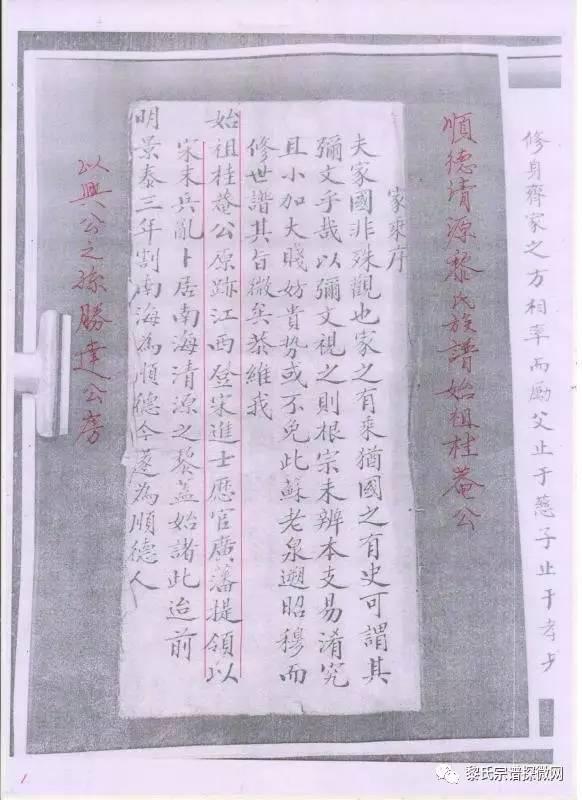 修身齊家之方相率而勵父止于慈子止于孝夕
順德清源黎氏族譜始祖桂菴公
家乘序
夫家國非殊觀也家之有乘猶國之有史可謂其
彌文乎哉以彌文視之則根宗未辨本支易淆究
且小加大賤妨貴势或不免此蘇老泉遡昭穆而
修世譜其旨微矣恭維我
始祖桂菴公原跡江西登宋進士歷官廣藩提領以
宋末兵亂卜居南海清源之黎蓋始諸此迨前
明景泰三年割南海為順德今遂為順德人
以興公之孫勝達公房
1
黎氏宗谱探微网